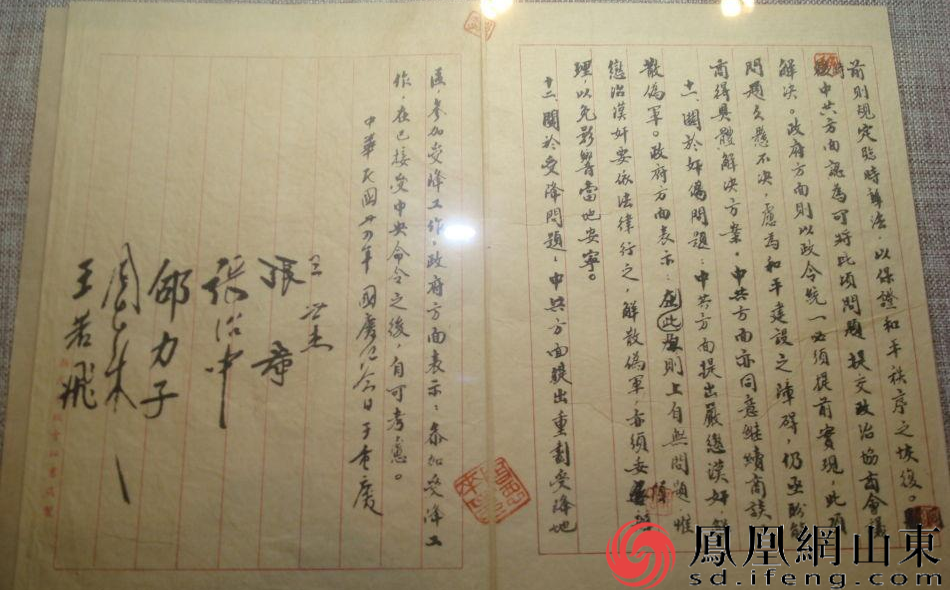 前則規定臨時辦法,以保證和平秩序之恢復。
中共方面認為可將此項問題提交政治協商會議
解決。政府方面則以政令統一必須提前實現,此項
問題久懸不決,慮為和平建設之障碍,仍亟盼能
商得具體解決方案。中共方面亦同意繼續商談。
十一、關於奸偽問題:中共方面提出嚴懲漢奸,解
散偽軍。政府方面表示:在此原則上自無問題,惟
懲治漢奸要依法律行之,解散偽軍亦須妥慎辦
理,以免影響當地安寧。
十二、關於受降問題:中共方面提出重劃受降地
區,參加受降工作。政府方面表示:參加受降工
作,在已接受中央命令之後,自可考慮。
中華民國卅四年國慶紀念日于重慶
王世杰
張羣
張治中
邵力子
周恩來
王若飛
鳳凰網山東
sd.ifeng.com